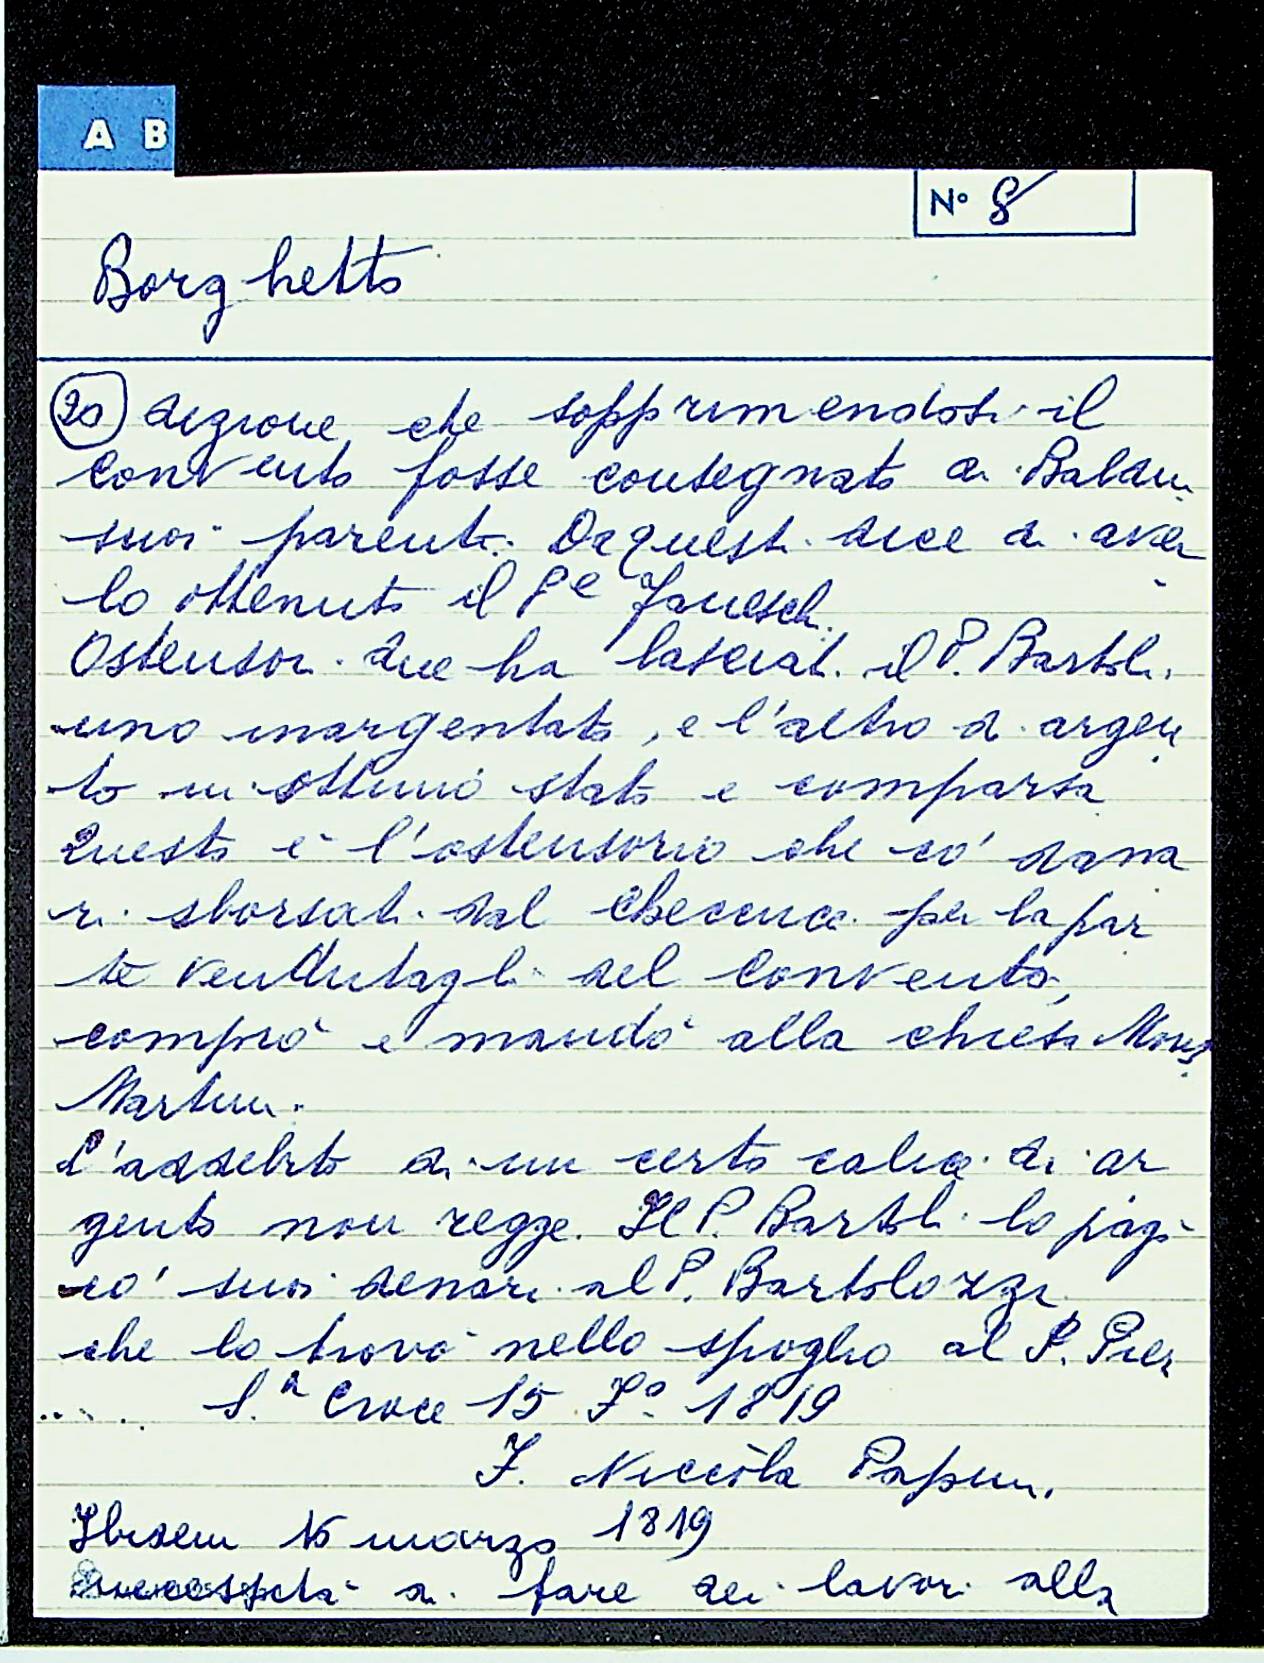 A B
N° 8
Borghetto
20 dizione, che sopprimendosi il
convento fosse consegnato a Baldin
suoi parenti. Da questi dice di aver
lo ottenuto il P.e
Ostensori due ha lasciati il P. Bartoli.
uno inargentato, e l'altro di argen
to in ottimo stato e comparsa
Questo è l'ostensorio che co' dana
ri sborsati dal per la par
te vendutagli del convento,
comprò e mandò alla chiesa Mons.
Martini.
L'addebito di un certo calice di ar
gento non regge. Il P. Bartoli lo pagò
co' suoi denari al P. Bartolozzi
che lo trovò nello spoglio al P. Pier
S.a Croce 15 F.o 1819
F. Niccòla Papini.
Ibidem 16 marzo 1819
di fare dei lavori alla